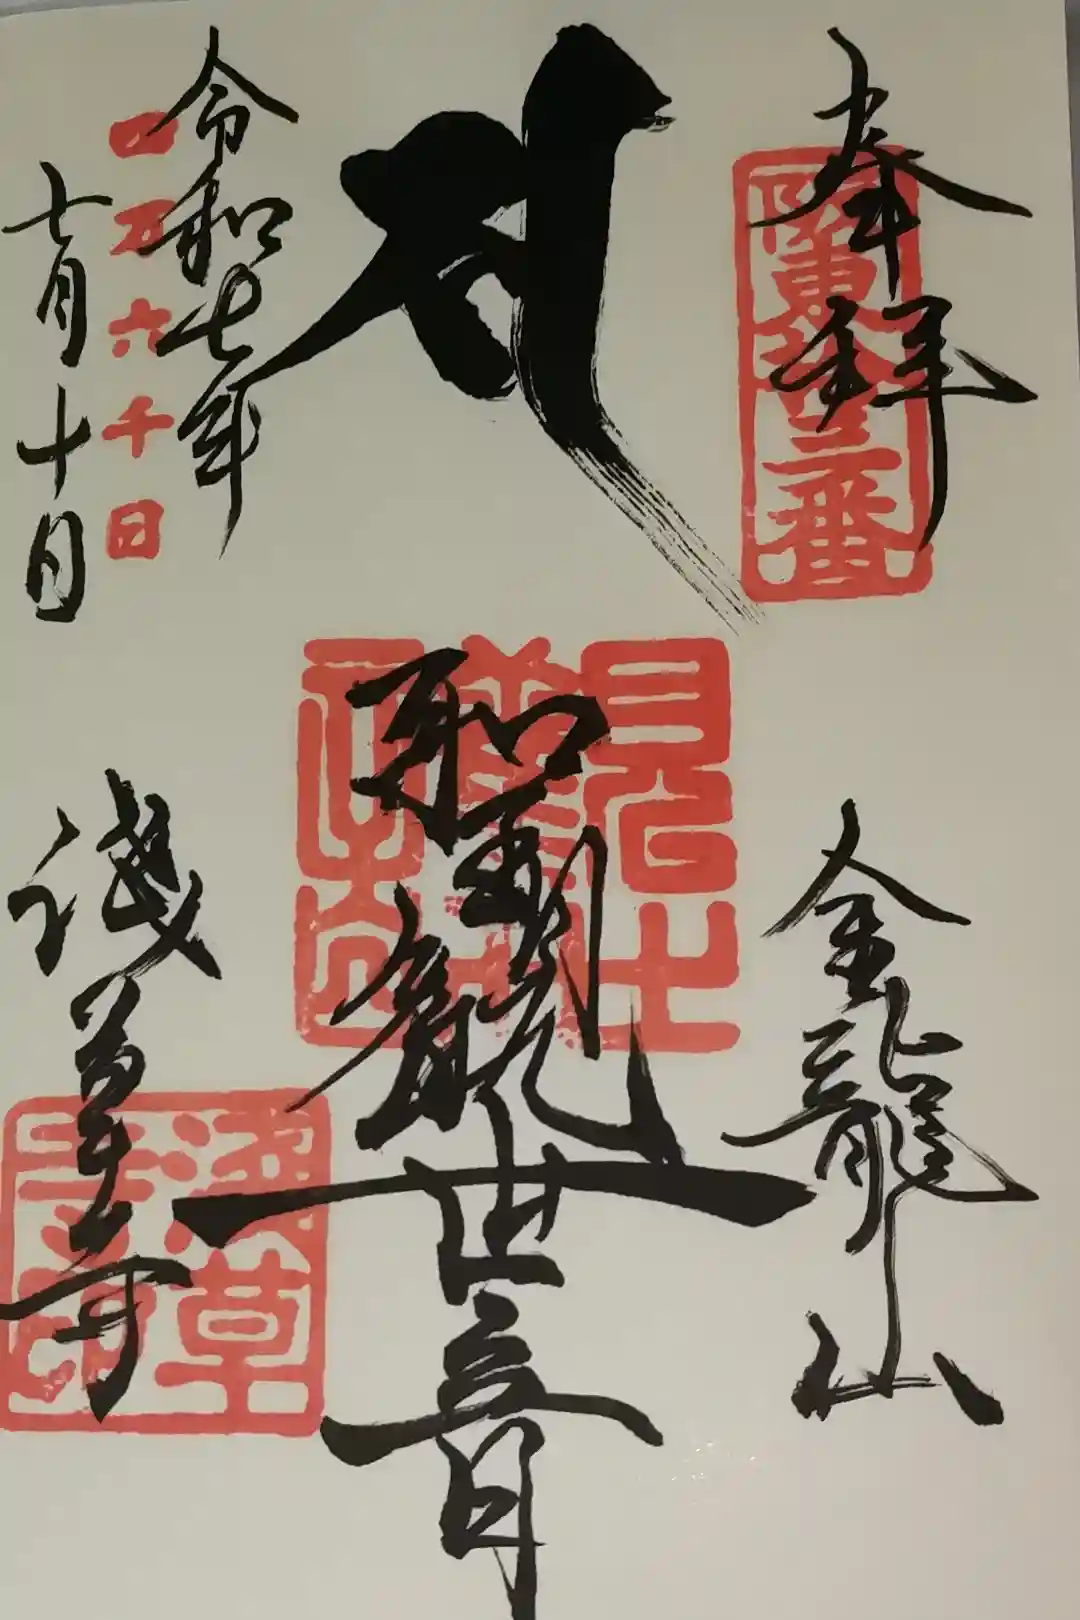 奉拝
坂東拾三番
金龍山
聖観世音
令和七年
四万六千日
七月十日
浅草寺
浅草寺印